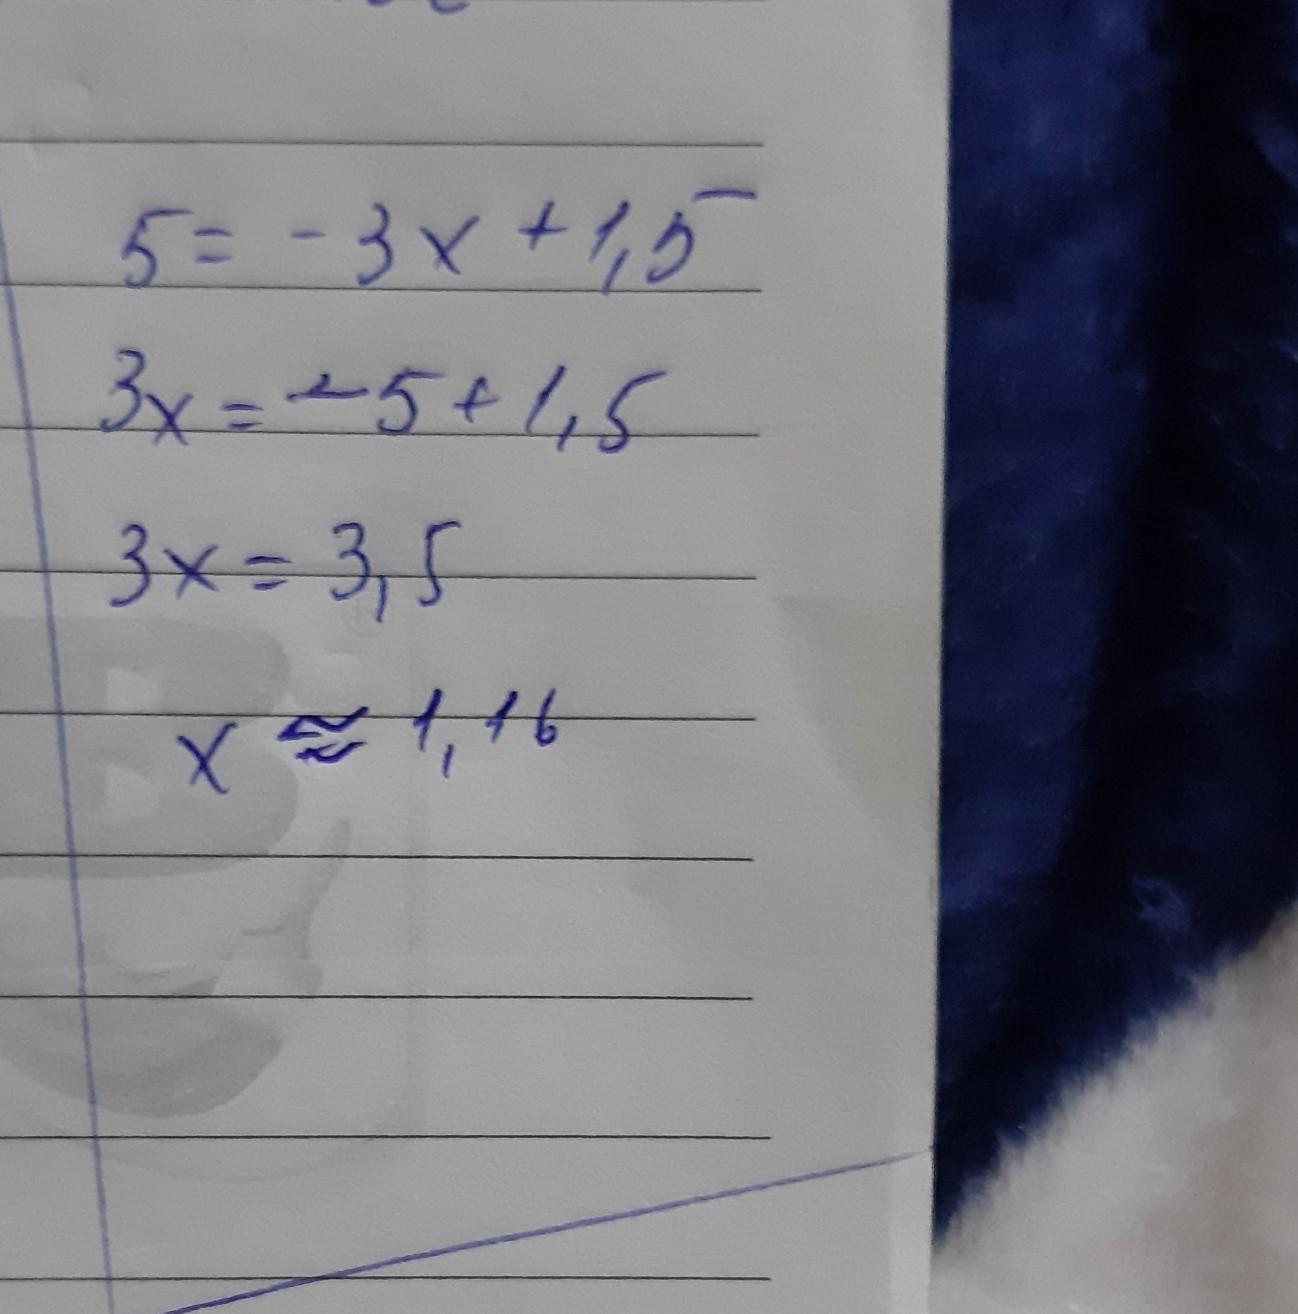 5 = -3x + 1,5
3x = -5 + 1,5
3x = 3,5
x ≈ 1,16